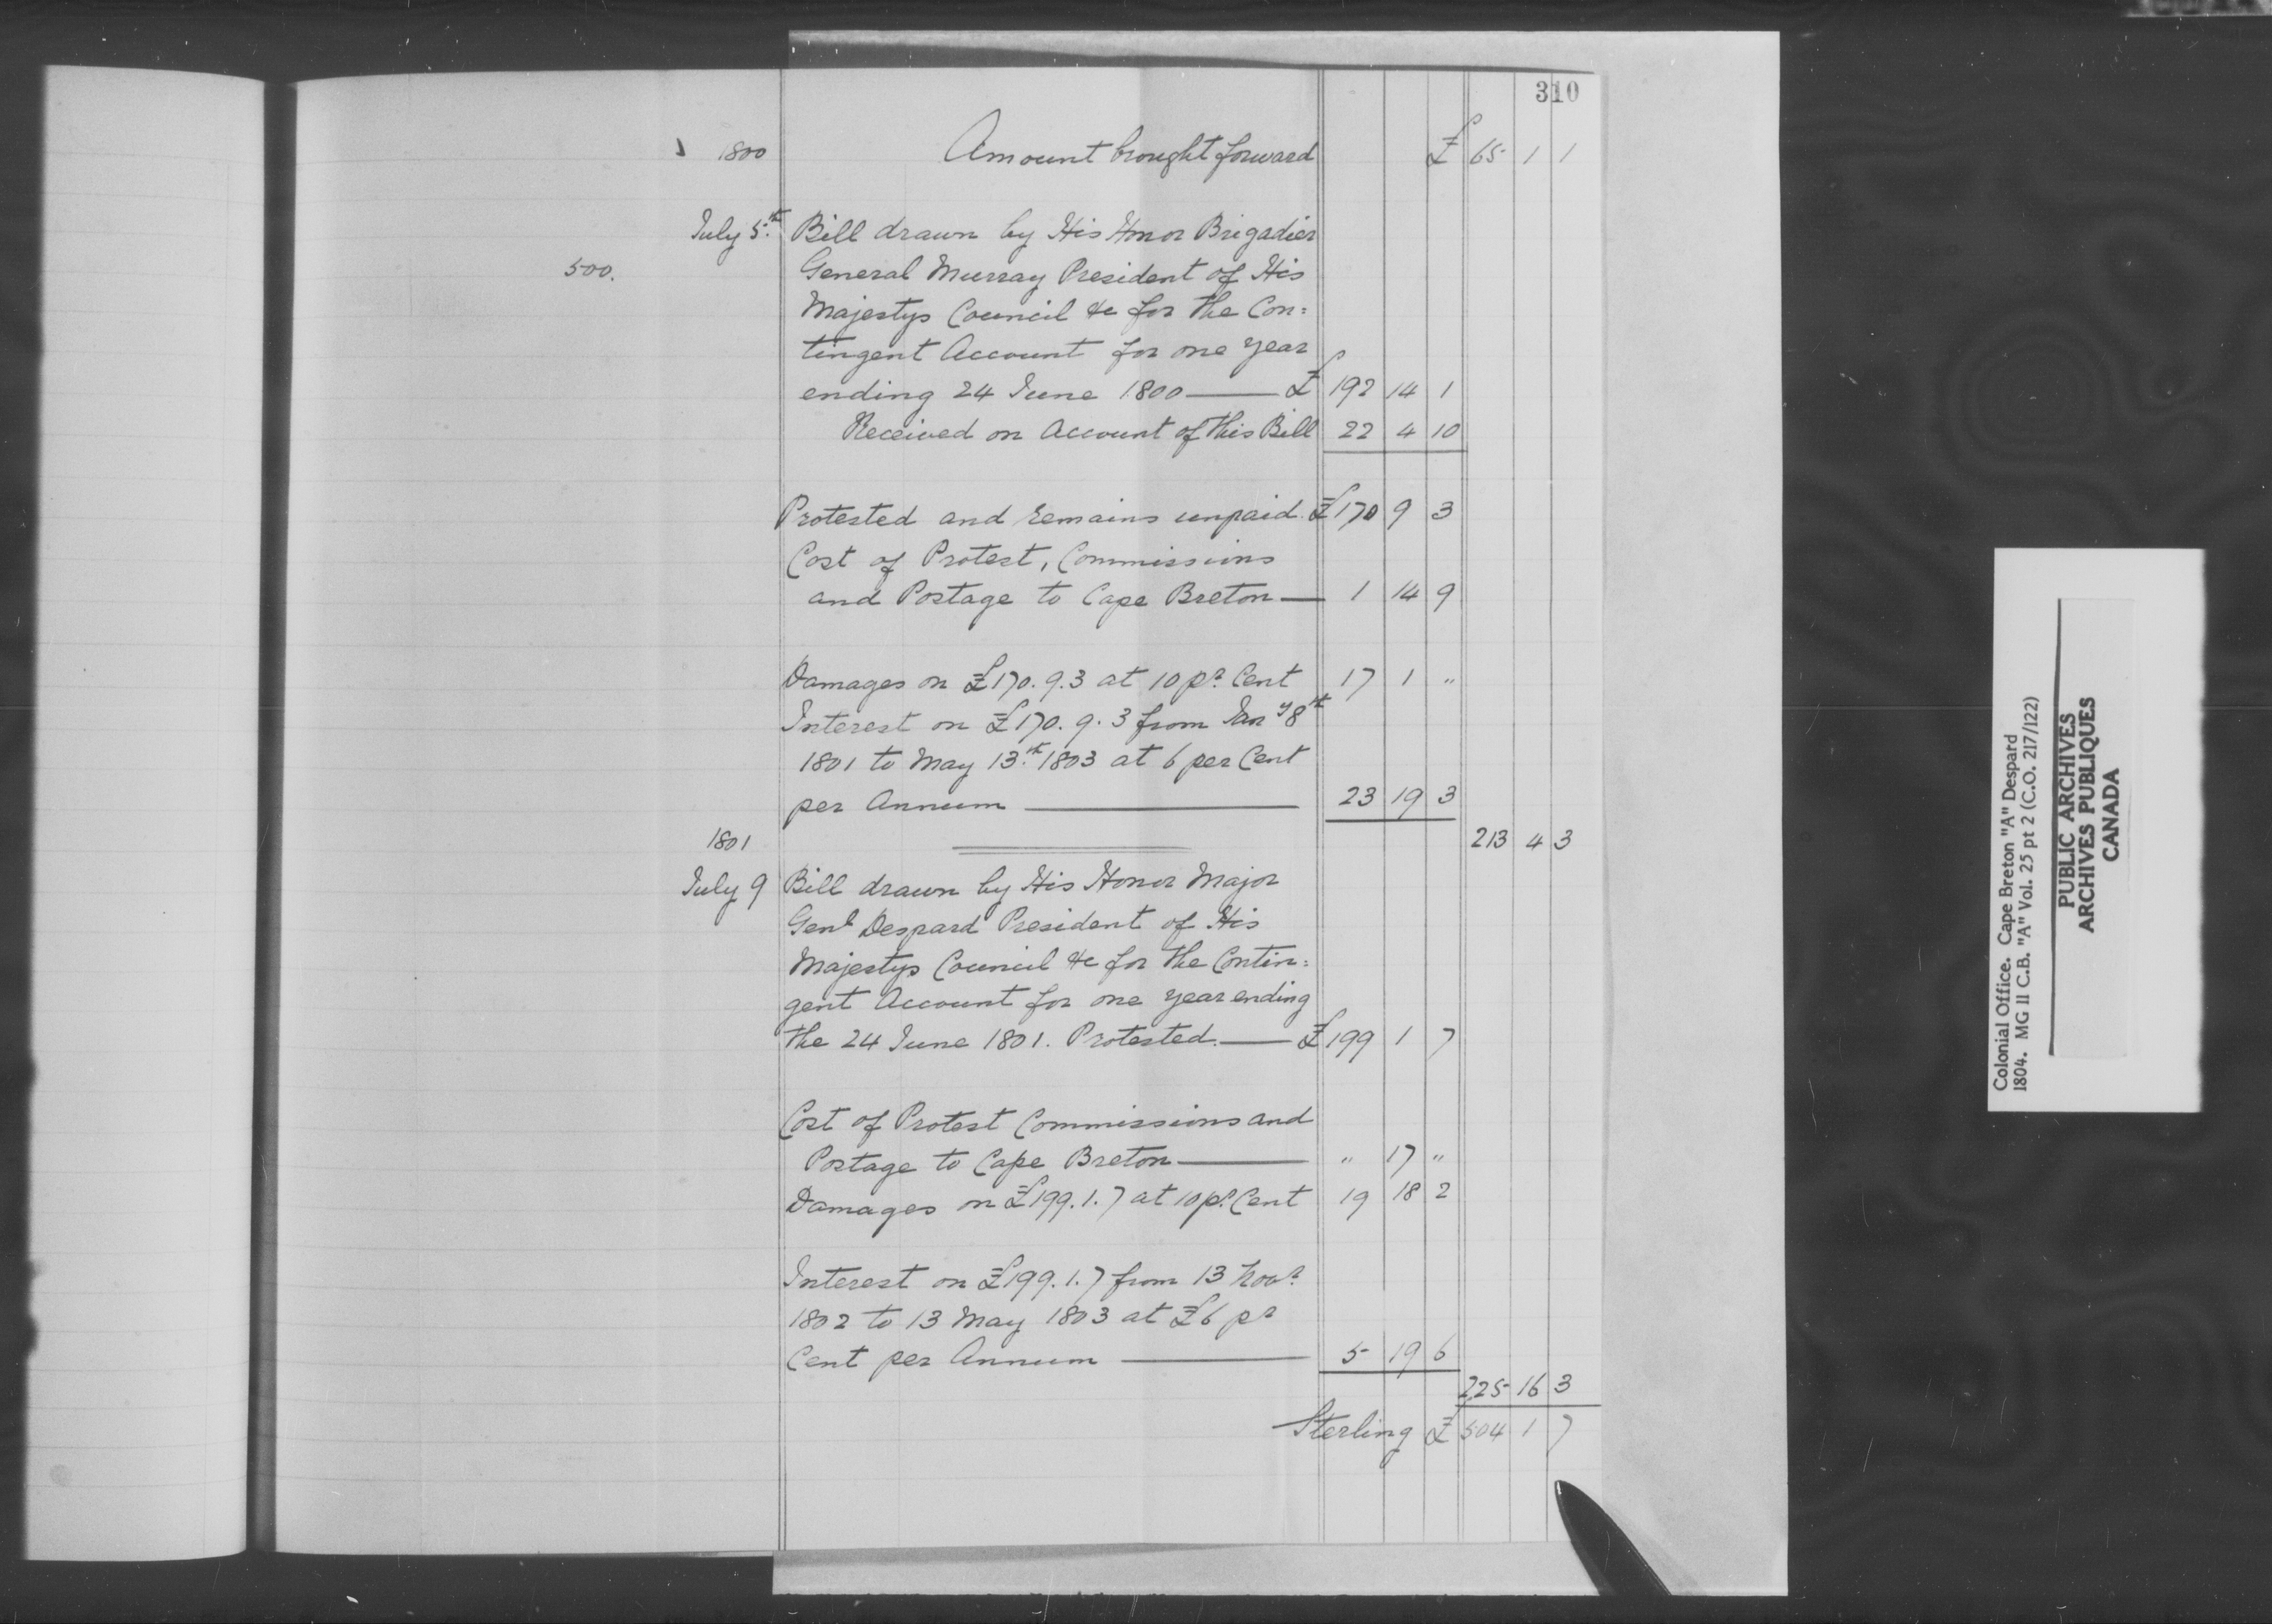 310
1800 Amount brought forward £ 65 1 1
July 5th Bill drawn by His Honor Brigadier
500. General Murray President of His
Majestys Council &c for the Con=
tingent Account for one year
ending 24 June 1800 — £ 192 14 1
Received on Account of this Bill 22 4 10
Protested and remains unpaid. £ 170 9 3
Cost of Protest, Commissions
and Postage to Cape Breton — 1 14 9
Damages on £170.9.3 at 10 pr Cent 17 1 "
Interest on £170.9.3 from Jany 8th
1801 to May 13th 1803 at 6 per Cent
per Annum — 23 19 3
1801 213 4 3
July 9 Bill drawn by His Honor Major
Genl Despard President of His
Majestys Council &c for the Contin=
gent Account for one year ending
the 24 June 1801. Protested. — £ 199 1 7
Cost of Protest Commissions and
Postage to Cape Breton — " 17 "
Damages on £199.1.7 at 10 pr Cent 19 18 2
Interest on £199.1.7 from 13 Novr
1802 to 13 May 1803 at £6 pr
Cent per Annum — 5 19 6
225 16 3
Sterling £ 504 1 7
Colonial Office. Cape Breton "A" Despard
1804. MG 11 C.B. "A" Vol. 25 pt 2 (C.O. 217/122)
PUBLIC ARCHIVES
ARCHIVES PUBLIQUES
CANADA